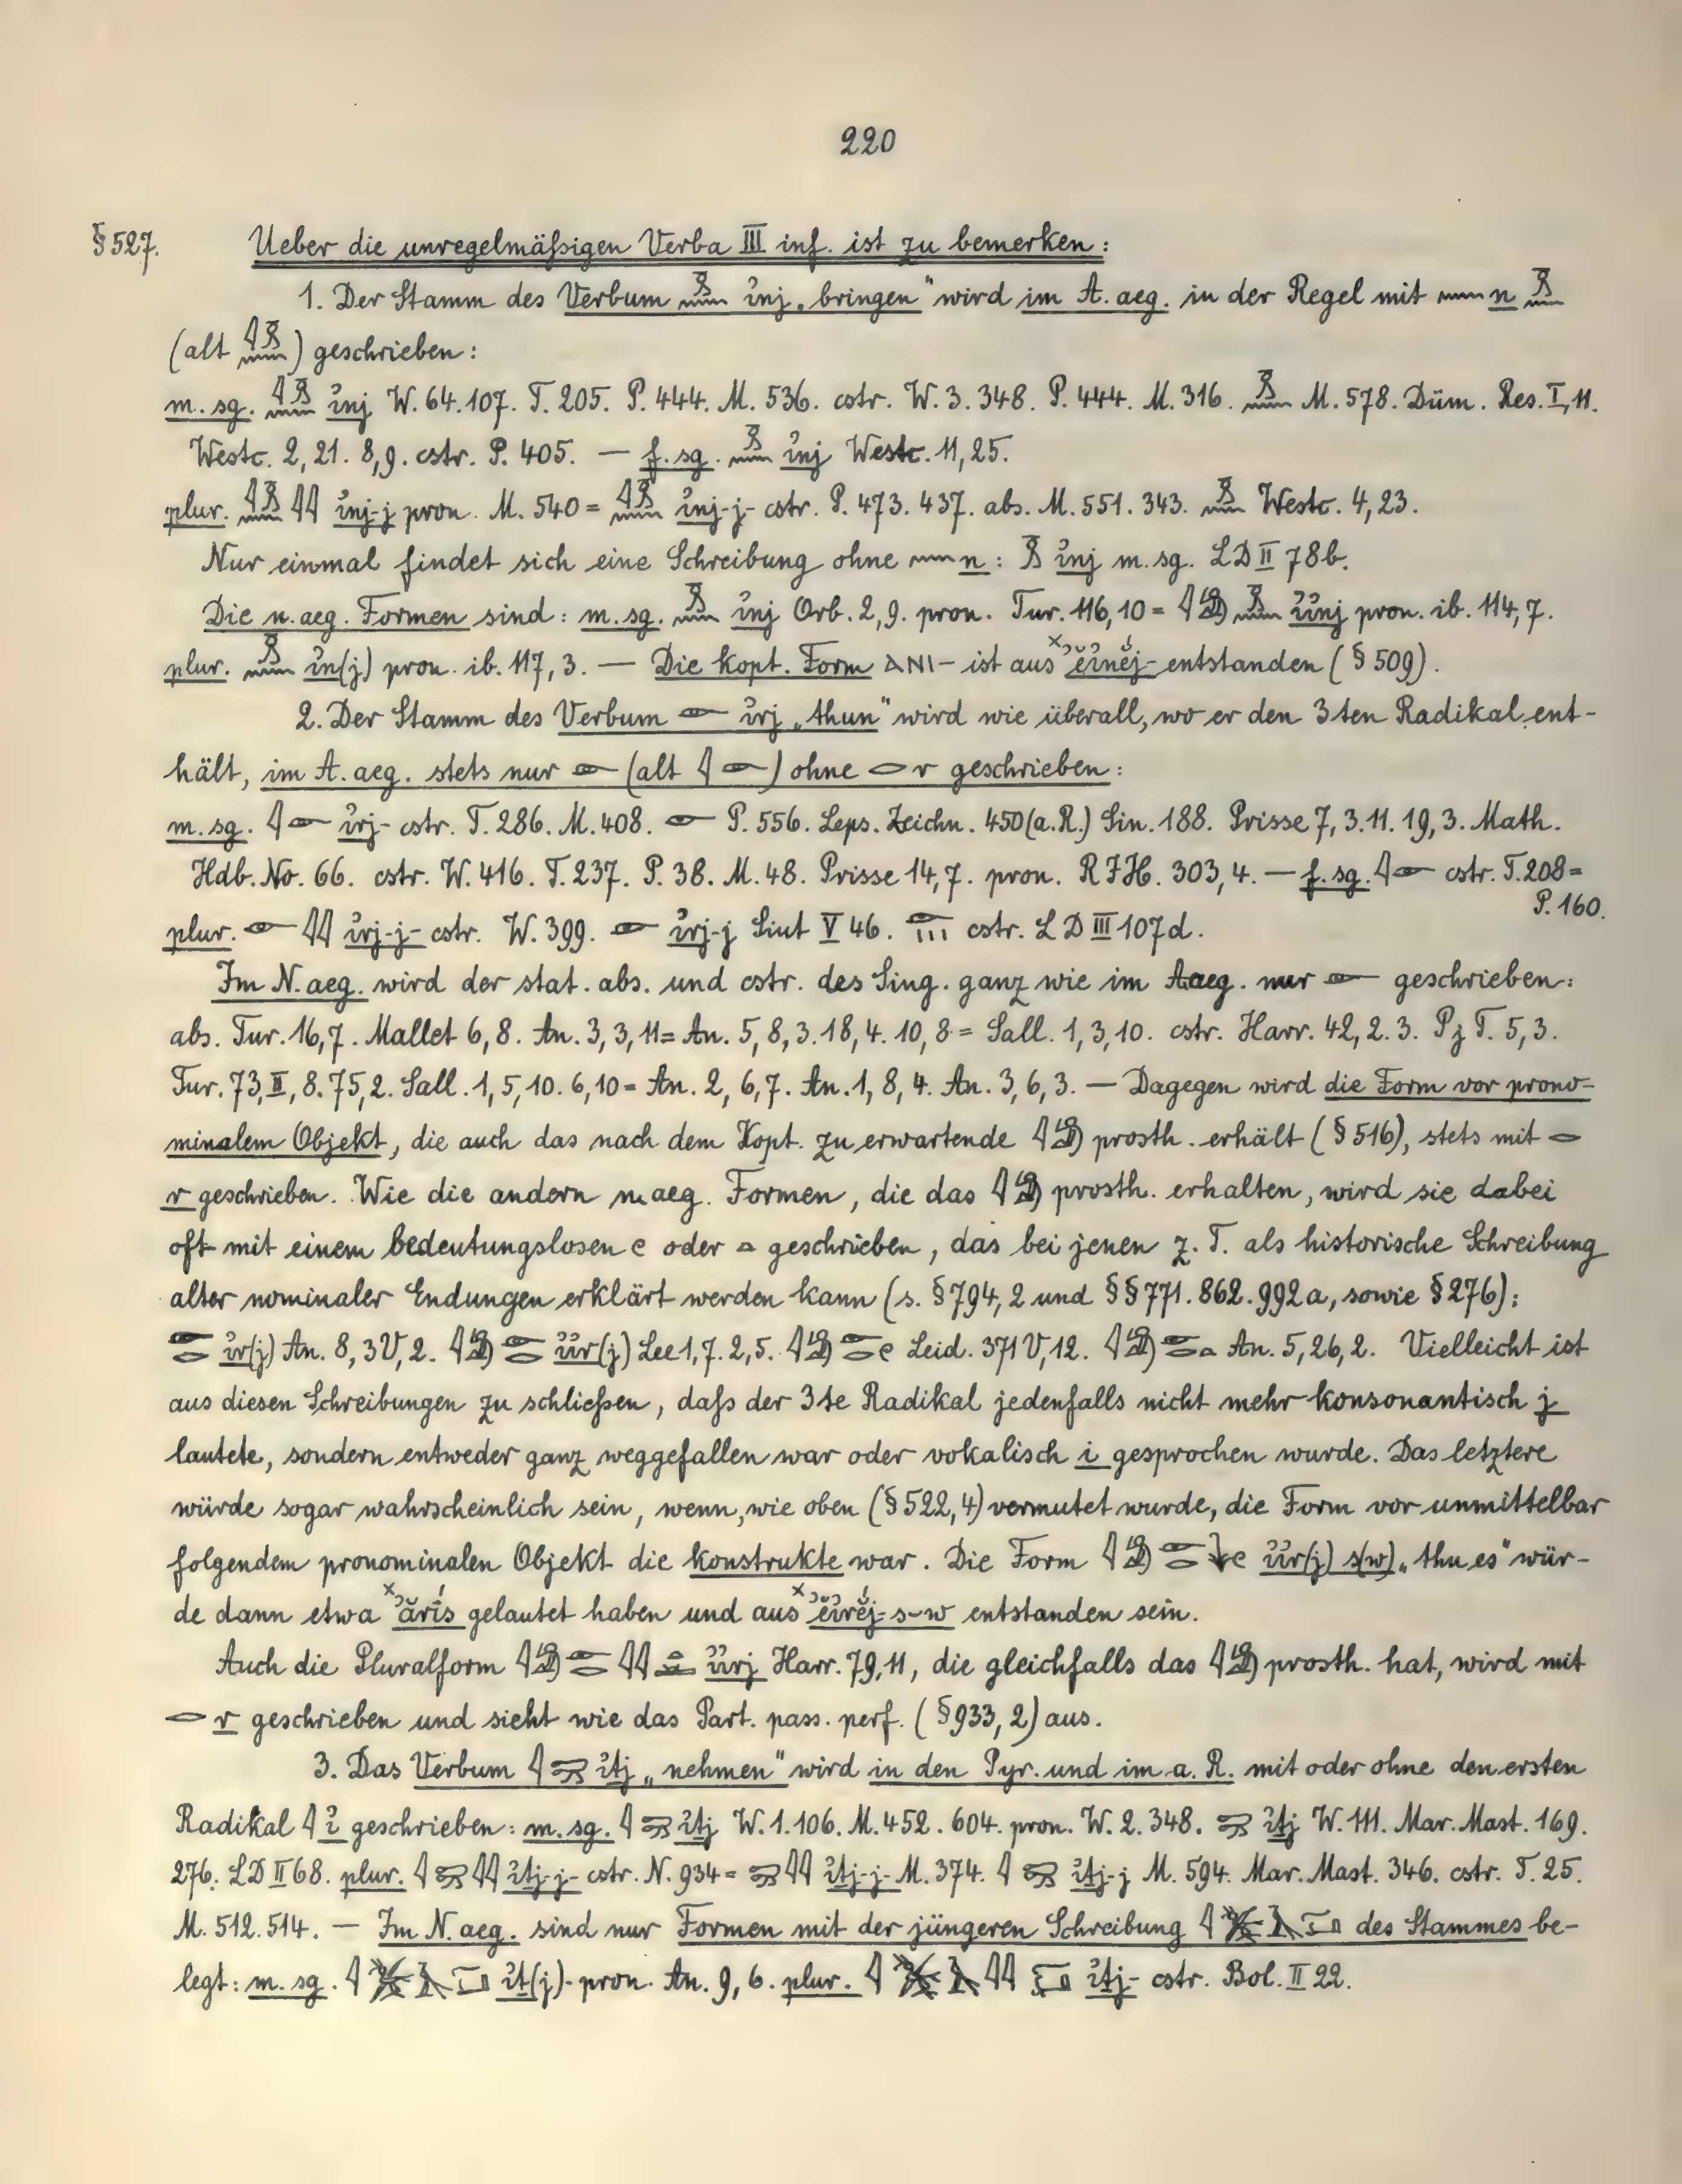 220
§ 527. Ueber die unregelmäßigen Verba III inf. ist zu bemerken:
1. Der Stamm des Verbum 𓏎𓈖 ἰnj „bringen" wird im A. aeg. in der Regel mit 𓈖 n 𓏎𓈖
(alt 𓇋𓏎𓈖) geschrieben:
m. sg. 𓇋𓏎𓈖 ἰnj W. 64. 107. T. 205. P. 444. M. 536. cstr. W. 3. 348. P. 444. M. 316. 𓏎𓈖 M. 578. Düm. Res. I, 11.
Westc. 2, 21. 8, 9. cstr. P. 405. — f. sg. 𓏎𓈖 ἰnj Westc. 11, 25.
plur. 𓇋𓏎𓈖𓇋𓇋 ἰnj-j pron. M. 540 = 𓇋𓏎𓈖 ἰnj-j- cstr. P. 473. 437. abs. M. 551. 343. 𓏎𓈖 Westc. 4, 23.
Nur einmal findet sich eine Schreibung ohne 𓈖 n: 𓏎 ἰnj m. sg. LD II 78b.
Die n. aeg. Formen sind: m. sg. 𓏎𓈖 ἰnj Orb. 2, 9. pron. Tur. 116, 10 = 𓇋𓀁𓏎𓈖 ἰἰnj pron. ib. 114, 7.
plur. 𓏎𓈖 ἰn(j) pron. ib. 117, 3. — Die kopt. Form ⲀⲚⲒ- ist aus ˣʾĕʾnéj- entstanden (§ 509).
2. Der Stamm des Verbum 𓁹 ἰrj „thun" wird wie überall, wo er den 3ten Radikal ent-
hält, im A. aeg. stets nur 𓁹 (alt 𓇋𓁹) ohne 𓂋 r geschrieben:
m. sg. 𓇋𓁹 ἰrj- cstr. T. 286. M. 408. 𓁹 P. 556. Leps. Zeichn. 450 (a. R.) Sin. 188. Prisse 7, 3. 11. 19, 3. Math.
Hdb. No. 66. cstr. W. 416. T. 237. P. 38. M. 48. Prisse 14, 7. pron. RJH. 303, 4. — f. sg. 𓇋𓁹 cstr. T. 208 =
P. 160.
plur. 𓁹𓇋𓇋 ἰrj-j- cstr. W. 399. 𓁹 ἰrj-j Siut V 46. 𓁹𓏥 cstr. LD III 107d.
Im N. aeg. wird der stat. abs. und cstr. des Sing. ganz wie im A. aeg. nur 𓁹 geschrieben:
abs. Tur. 16, 7. Mallet 6, 8. An. 3, 3, 11 = An. 5, 8, 3. 18, 4. 10, 8 = Sall. 1, 3, 10. cstr. Harr. 42, 2. 3. Pz T. 5, 3.
Tur. 73, II, 8. 75, 2. Sall. 1, 5, 10. 6, 10 = An. 2, 6, 7. An. 1, 8, 4. An. 3, 6, 3. — Dagegen wird die Form vor prono-
minalem Objekt, die auch das nach dem Kopt. zu erwartende 𓇋𓀁 prosth. erhält (§ 516), stets mit 𓂋
r geschrieben. Wie die andern n. aeg. Formen, die das 𓇋𓀁 prosth. erhalten, wird sie dabei
oft mit einem bedeutungslosen 𓏲 oder 𓏏 geschrieben, das bei jenen z. T. als historische Schreibung
alter nominaler Endungen erklärt werden kann (s. § 794, 2 und §§ 771. 862. 992a, sowie § 276):
𓁹𓂋 ἰr(j) An. 8, 3 V, 2. 𓇋𓀁𓁹𓂋 ἰἰr(j) Lee 1, 7. 2, 5. 𓇋𓀁𓁹𓂋𓏲 Leid. 371 V, 12. 𓇋𓀁𓁹𓂋𓏏 An. 5, 26, 2. Vielleicht ist
aus diesen Schreibungen zu schließen, daß der 3te Radikal jedenfalls nicht mehr konsonantisch j
lautete, sondern entweder ganz weggefallen war oder vokalisch i gesprochen wurde. Das letztere
würde sogar wahrscheinlich sein, wenn, wie oben (§ 522, 4) vermutet wurde, die Form vor unmittelbar
folgendem pronominalen Objekt die konstrukte war. Die Form 𓇋𓀁𓁹𓂋𓇓𓏲 ἰἰr(j) s(w) „thu es" wür-
de dann etwa ˣʾărís gelautet haben und aus ˣʾĕʾréj-s-w entstanden sein.
Auch die Pluralform 𓇋𓀁𓁹𓂋𓇋𓇋 ἰἰrj Harr. 79, 11, die gleichfalls das 𓇋𓀁 prosth. hat, wird mit
𓂋 r geschrieben und sieht wie das Part. pass. perf. (§ 933, 2) aus.
3. Das Verbum 𓇋𓍿 ἰtj „nehmen" wird in den Pyr. und im a. R. mit oder ohne den ersten
Radikal 𓇋 ἰ geschrieben: m. sg. 𓇋𓍿 ἰtj W. 1. 106. M. 452. 604. pron. W. 2. 348. 𓍿 ἰtj W. 111. Mar. Mast. 169.
276. LD II 68. plur. 𓇋𓍿𓇋𓇋 ἰtj-j- cstr. N. 934 = 𓍿𓇋𓇋 ἰtj-j- M. 374. 𓇋𓍿 ἰtj-j M. 594. Mar. Mast. 346. cstr. T. 25.
M. 512. 514. — Im N. aeg. sind nur Formen mit der jüngeren Schreibung des Stammes be-
legt: m. sg. ἰt(j)- pron. An. 9, 6. plur. ἰtj- cstr. Bol. II 22.